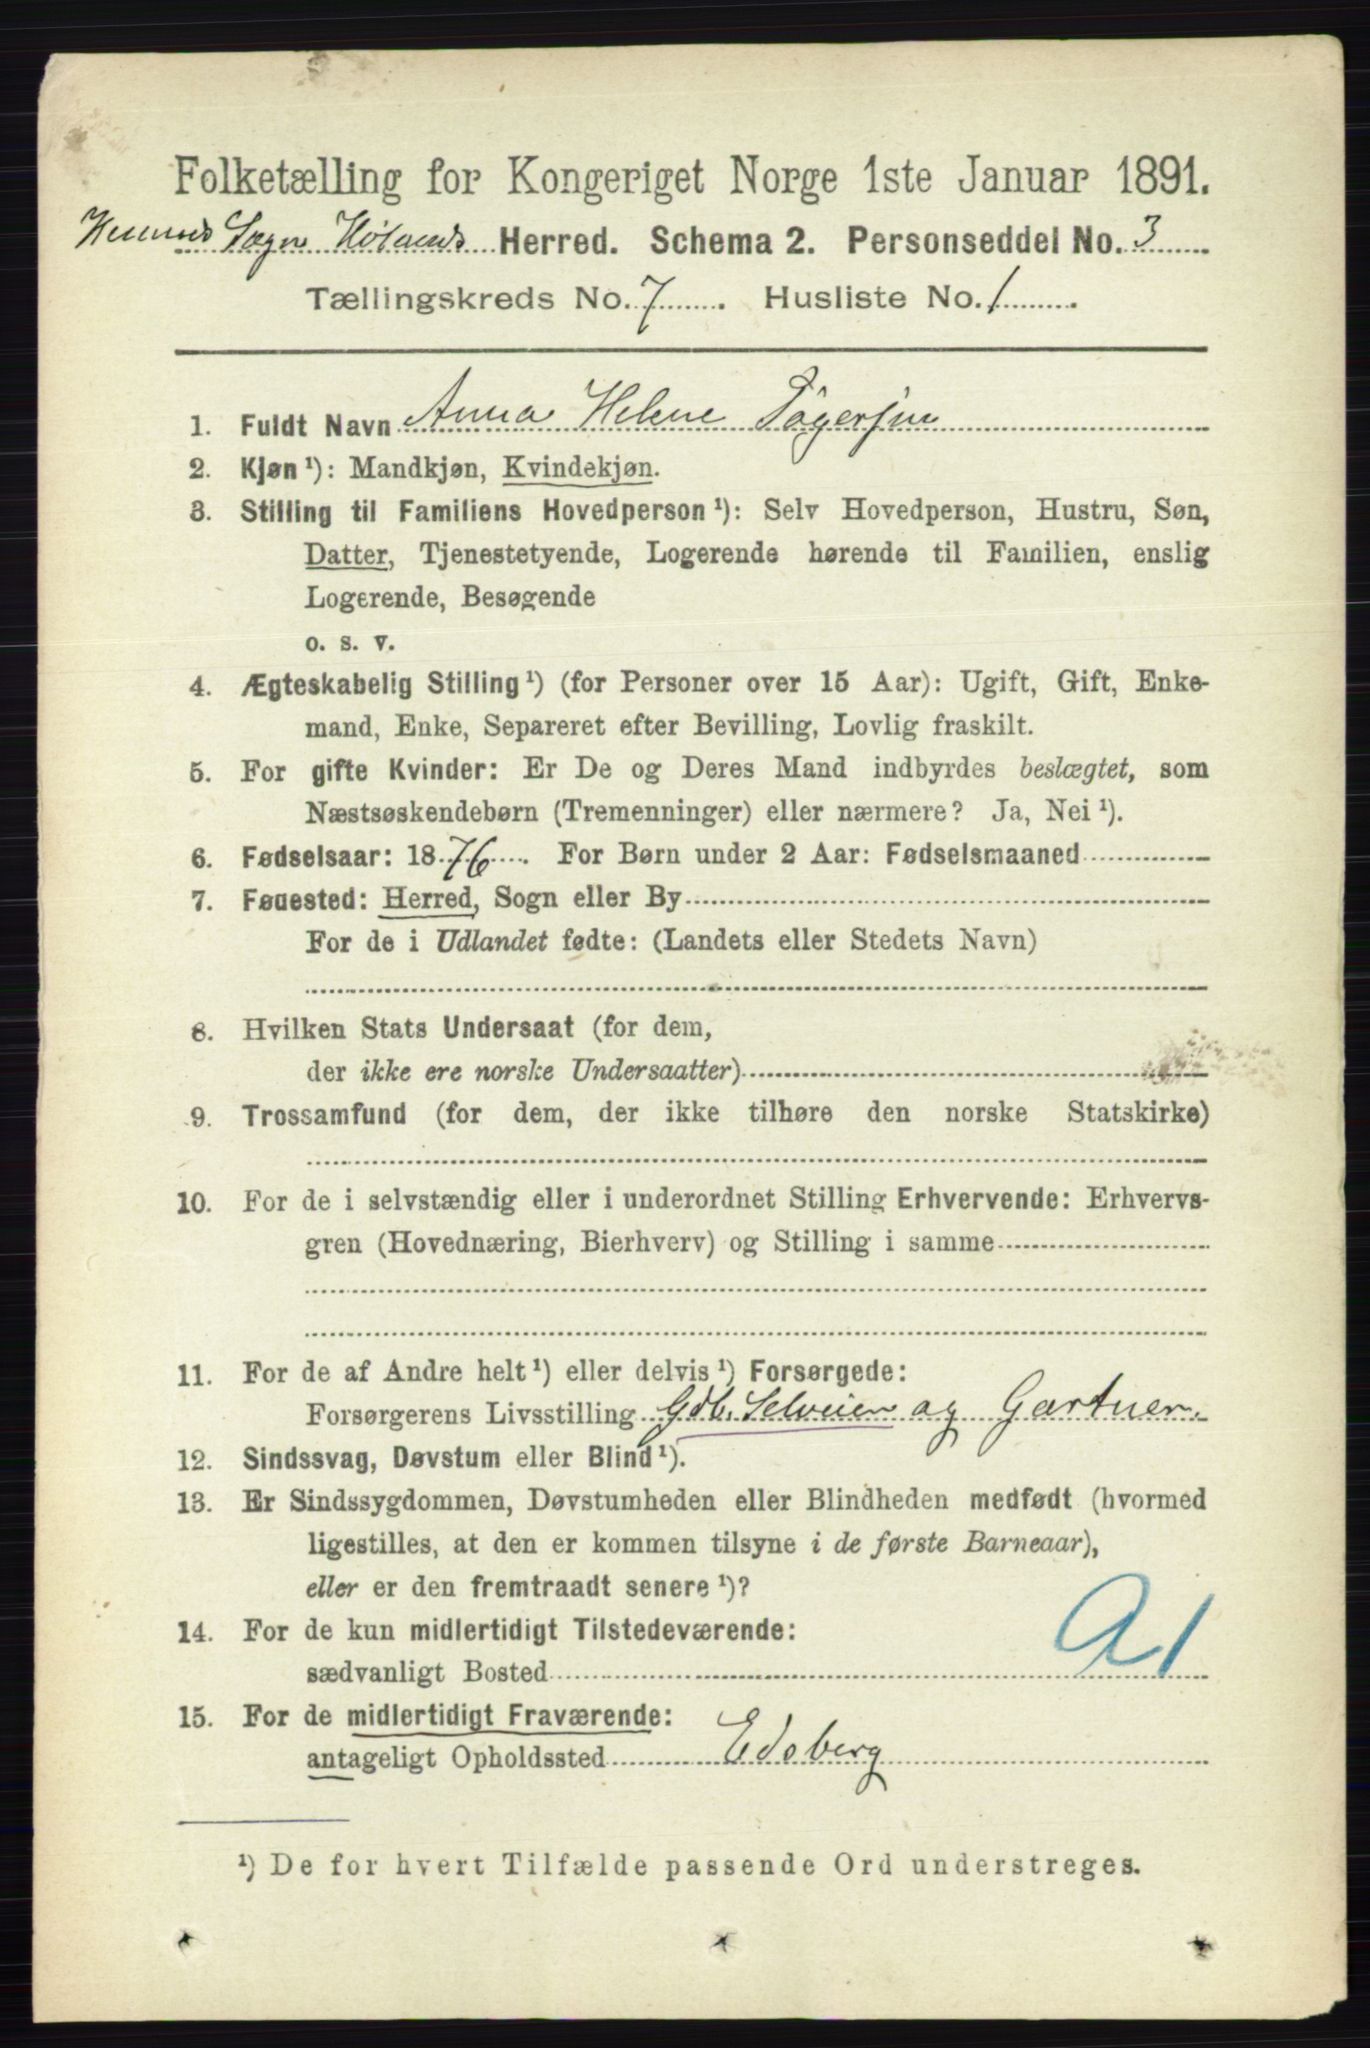 Folketælling for Kongeriget Norge 1ste Januar 1891.
Sogn Hølands Herred. Schema 2. Personseddel No. 3
Tællingskreds No. 7. Husliste No. 1.
1. Fuldt Navn Anna Helene
2. Kjøn¹): Mandkjøn, Kvindekjøn.
3. Stilling til Familiens Hovedperson¹): Selv Hovedperson, Hustru, Søn,
Datter, Tjenestetyende, Logerende hørende til Familien, enslig
Logerende, Besøgende
o. s. v.
4. Ægteskabelig Stilling¹) (for Personer over 15 Aar): Ugift, Gift, Enke-
mand, Enke, Separeret efter Bevilling, Lovlig fraskilt.
5. For gifte Kvinder: Er De og Deres Mand indbyrdes beslægtet, som
Næstsøskendebørn (Tremenninger) eller nærmere? Ja, Nei¹).
6. Fødselsaar: 1876. For Børn under 2 Aar: Fødselsmaaned
7. Føuested: Herred, Sogn eller By
For de i Udlandet fødte: (Landets eller Stedets Navn)
8. Hvilken Stats Undersaat (for dem,
der ikke ere norske Undersaatter)
9. Trossamfund (for dem, der ikke tilhøre den norske Statskirke)
10. For de i selvstændig eller i underordnet Stilling Erhvervende: Erhvervs-
gren (Hovednæring, Bierhverv) og Stilling i samme
11. For de af Andre helt¹) eller delvis¹) Forsørgede:
Forsørgerens Livsstilling Gdb. Selveier og Gartner.
12. Sindssvag, Døvstum eller Blind¹).
13. Er Sindssygdommen, Døvstumheden eller Blindheden medfødt (hvormed
ligestilles, at den er kommen tilsyne i de første Barneaar),
eller er den fremtraadt senere¹)?
14. For de kun midlertidigt Tilstedeværende:
sædvanligt Bosted
15. For de midlertidigt Fraværende:
antageligt Opholdssted Edsberg
¹) De for hvert Tilfælde passende Ord understreges.